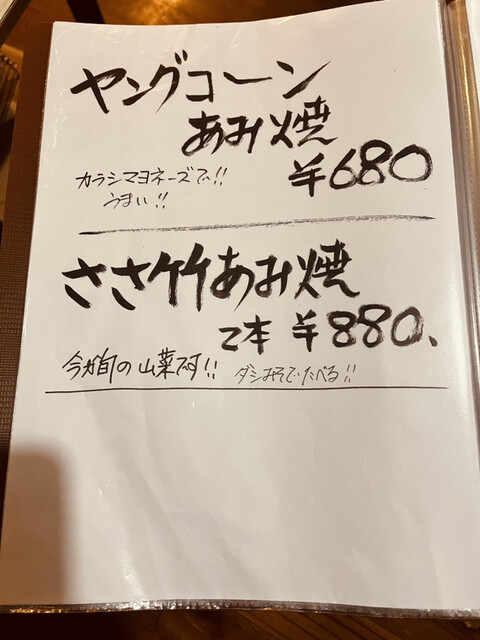 ヤングコーン
あみ焼
¥680
カラシマヨネーズで!!
うまい!!
ささ竹あみ焼
2本 ¥880、
今が旬の山菜です!! ダシみそでたべる!!